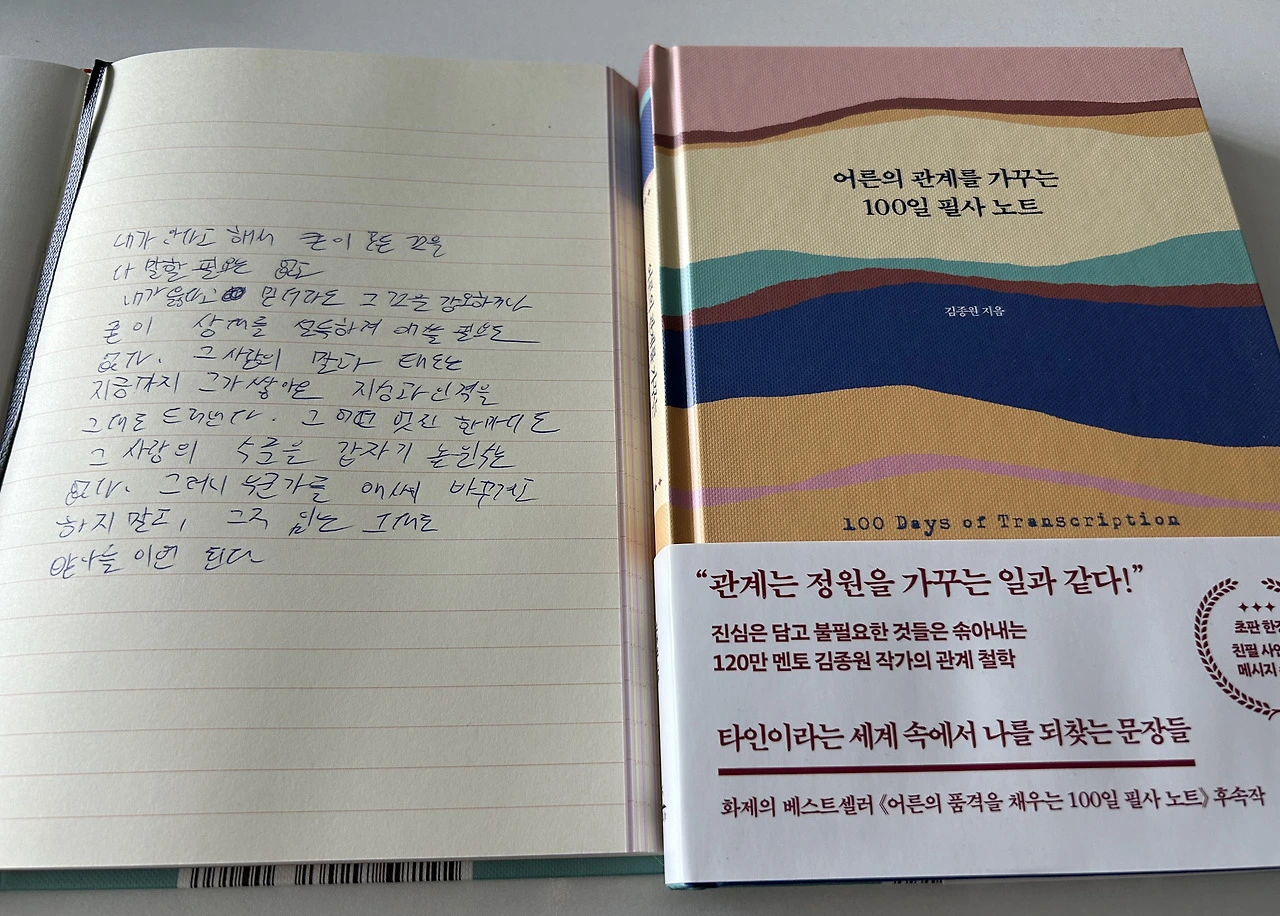 내가 안다고 해서 굳이 모든 것을
다 말할 필요는 없고
내가 옳다고 믿더라도 그것을 강요하거나
굳이 상대를 설득하려 애쓸 필요도
없다. 그 사람의 말과 태도는
지금까지 그가 쌓아온 지성과 인격을
그대로 드러낸다. 그 어떤 멋진 한마디도
그 사람의 수준을 갑자기 높일 수는
없다. 그러니 누군가를 애써 바꾸려고
하지 말고, 그저 있는 그대로
안아들이면 된다
어른의 관계를 가꾸는
100일 필사 노트
김종원 지음
100 Days of Transcription
“관계는 정원을 가꾸는 일과 같다!”
진심은 담고 불필요한 것들은 솎아내는
120만 멘토 김종원 작가의 관계 철학
초판 한정
친필 사인
메시지
타인이라는 세계 속에서 나를 되찾는 문장들
화제의 베스트셀러 《어른의 품격을 채우는 100일 필사 노트》 후속작